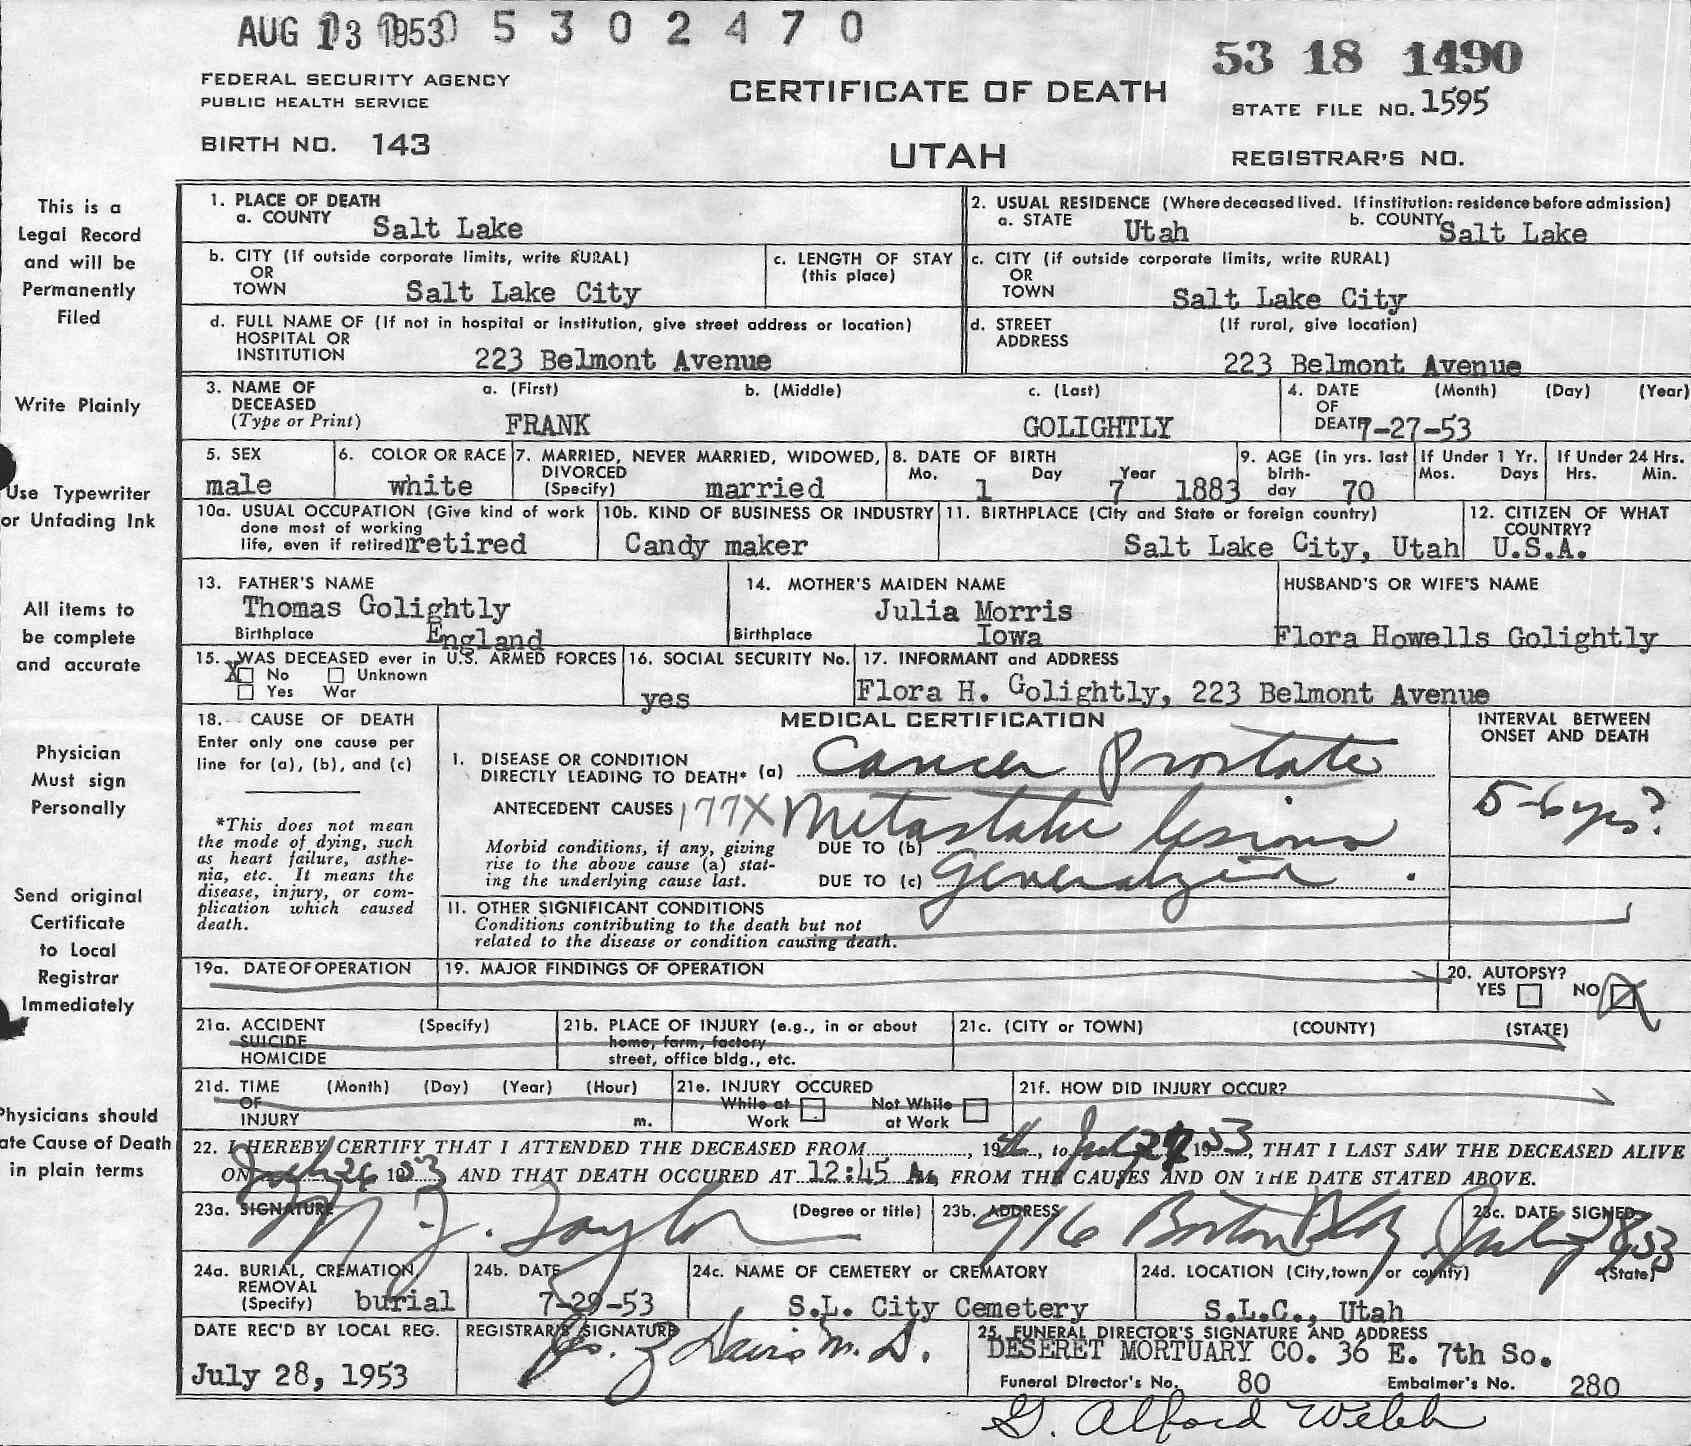 AUG 13 1953 5 3 0 2 4 7 0
53 18 1490
FEDERAL SECURITY AGENCY
PUBLIC HEALTH SERVICE
CERTIFICATE OF DEATH
STATE FILE NO. 1595
BIRTH NO. 143
UTAH
REGISTRAR'S NO.
This is a
Legal Record
and will be
Permanently
Filed
Write Plainly
Use Typewriter
or Unfading Ink
All items to
be complete
and accurate
Physician
Must sign
Personally
Send original
Certificate
to Local
Registrar
Immediately
Physicians should
ate Cause of Death
in plain terms
1. PLACE OF DEATH
a. COUNTY Salt Lake
2. USUAL RESIDENCE (Where deceased lived. If institution: residence before admission)
a. STATE Utah b. COUNTY Salt Lake
b. CITY (If outside corporate limits, write RURAL)
OR
TOWN Salt Lake City
c. LENGTH OF STAY
(this place)
c. CITY (if outside corporate limits, write RURAL)
OR
TOWN Salt Lake City
d. FULL NAME OF (If not in hospital or institution, give street address or location)
HOSPITAL OR
INSTITUTION 223 Belmont Avenue
d. STREET (If rural, give location)
ADDRESS
223 Belmont Avenue
3. NAME OF a. (First) b. (Middle) c. (Last)
DECEASED
(Type or Print) FRANK GOLIGHTLY
4. DATE (Month) (Day) (Year)
OF
DEATH 7-27-53
5. SEX
male
6. COLOR OR RACE
white
7. MARRIED, NEVER MARRIED, WIDOWED,
DIVORCED
(Specify) married
8. DATE OF BIRTH
Mo. Day Year
1 7 1883
9. AGE (in yrs. last
birth-
day 70
If Under 1 Yr.
Mos. Days
If Under 24 Hrs.
Hrs. Min.
10a. USUAL OCCUPATION (Give kind of work
done most of working
life, even if retired) retired
10b. KIND OF BUSINESS OR INDUSTRY
Candy maker
11. BIRTHPLACE (City and State or foreign country)
Salt Lake City, Utah
12. CITIZEN OF WHAT
COUNTRY?
U.S.A.
13. FATHER'S NAME
Thomas Golightly
Birthplace England
14. MOTHER'S MAIDEN NAME
Julia Morris
Birthplace Iowa
HUSBAND'S OR WIFE'S NAME
Flora Howells Golightly
15. WAS DECEASED ever in U.S. ARMED FORCES
X No Unknown
Yes War
16. SOCIAL SECURITY No.
yes
17. INFORMANT and ADDRESS
Flora H. Golightly, 223 Belmont Avenue
18. CAUSE OF DEATH
Enter only one cause per
line for (a), (b), and (c)
*This does not mean
the mode of dying, such
as heart failure, asthe-
nia, etc. It means the
disease, injury, or com-
plication which caused
death.
MEDICAL CERTIFICATION
I. DISEASE OR CONDITION
DIRECTLY LEADING TO DEATH* (a) Cancer Prostate
ANTECEDENT CAUSES 177X Metastatic lesions
Morbid conditions, if any, giving DUE TO (b)
rise to the above cause (a) stat-
ing the underlying cause last. DUE TO (c) Generalized
II. OTHER SIGNIFICANT CONDITIONS
Conditions contributing to the death but not
related to the disease or condition causing death.
INTERVAL BETWEEN
ONSET AND DEATH
5-6 yrs?
19a. DATE OF OPERATION
19. MAJOR FINDINGS OF OPERATION
20. AUTOPSY?
YES NO
21a. ACCIDENT (Specify)
SUICIDE
HOMICIDE
21b. PLACE OF INJURY (e.g., in or about
home, farm, factory
street, office bldg., etc.
21c. (CITY or TOWN) (COUNTY) (STATE)
21d. TIME (Month) (Day) (Year) (Hour)
OF
INJURY m.
21e. INJURY OCCURED
While at Not While
Work at Work
21f. HOW DID INJURY OCCUR?
22. I HEREBY CERTIFY THAT I ATTENDED THE DECEASED FROM, 19, to July 27 1953, THAT I LAST SAW THE DECEASED ALIVE
ON July 26 1953 AND THAT DEATH OCCURED AT 12:45 A m, FROM THE CAUSES AND ON THE DATE STATED ABOVE.
23a. SIGNATURE (Degree or title)
Taylor
23b. ADDRESS
916 Boston Bldg
23c. DATE SIGNED
July 28 53
24a. BURIAL, CREMATION,
REMOVAL
(Specify) burial
24b. DATE
7-29-53
24c. NAME OF CEMETERY or CREMATORY
S.L. City Cemetery
24d. LOCATION (City, town, or county) (State)
S.L.C., Utah
DATE REC'D BY LOCAL REG.
July 28, 1953
REGISTRAR'S SIGNATURE
Davis M. D.
25. FUNERAL DIRECTOR'S SIGNATURE AND ADDRESS
DESERET MORTUARY CO. 36 E. 7th So.
Funeral Director's No. 80 Embalmer's No. 280
G. Alford Webb